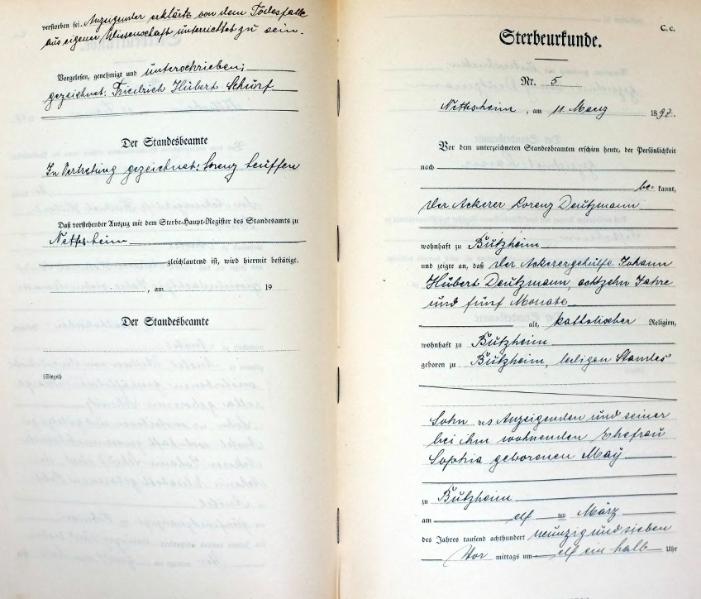 verstorben sei. Anzeigender erklärte von dem Todesfalle
aus eigener Wissenschaft unterrichtet zu sein.
Vorgelesen, genehmigt und unterschrieben:
gezeichnet: Friedrich Hubert Schurf
Der Standesbeamte
In Vertretung gezeichnet: Lorenz Leuffen
Daß vorstehender Auszug mit dem Sterbe-Haupt-Register des Standesamts zu
Nettesheim
gleichlautend ist, wird hiermit bestätigt.
, am 19
Der Standesbeamte
(Siegel)
C. c.
Sterbeurkunde.
Nr. 5
Nettesheim, am 11 März 1897.
Vor dem unterzeichneten Standesbeamten erschien heute, der Persönlichkeit
nach
be kannt,
der Ackerer Lorenz Deutzmann
wohnhaft zu Butzheim
und zeigte an, daß der Ackerergehülfe Johann
Hubert Deutzmann, achtzehn Jahre
und fünf Monate
alt, katholischer Religion,
wohnhaft zu Butzheim
geboren zu Butzheim, ledigen Standes
Sohn des Anzeigenden und seiner
bei ihm wohnenden Ehefrau
Sophia geborenen May
zu Butzheim
am elf ten März
des Jahres tausend achthundert neunzig und sieben
Vor mittags um elf ein halb Uhr